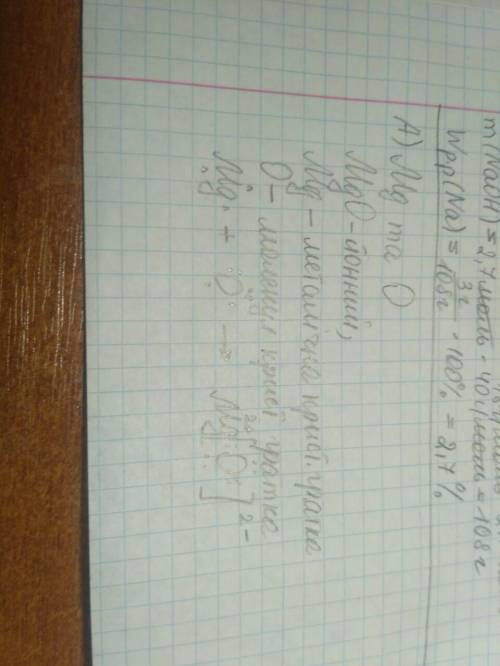 m(NaOH) = 2,7 моль · 40 г/моль = 108 г
Wрр(Na) = 3г/108г · 100% = 2,7%
А) Mg та O
MgO - йонний,
Mg - металічна крист. гратка
O - молекул крист гратка
Mg + O → Mg O]²⁻